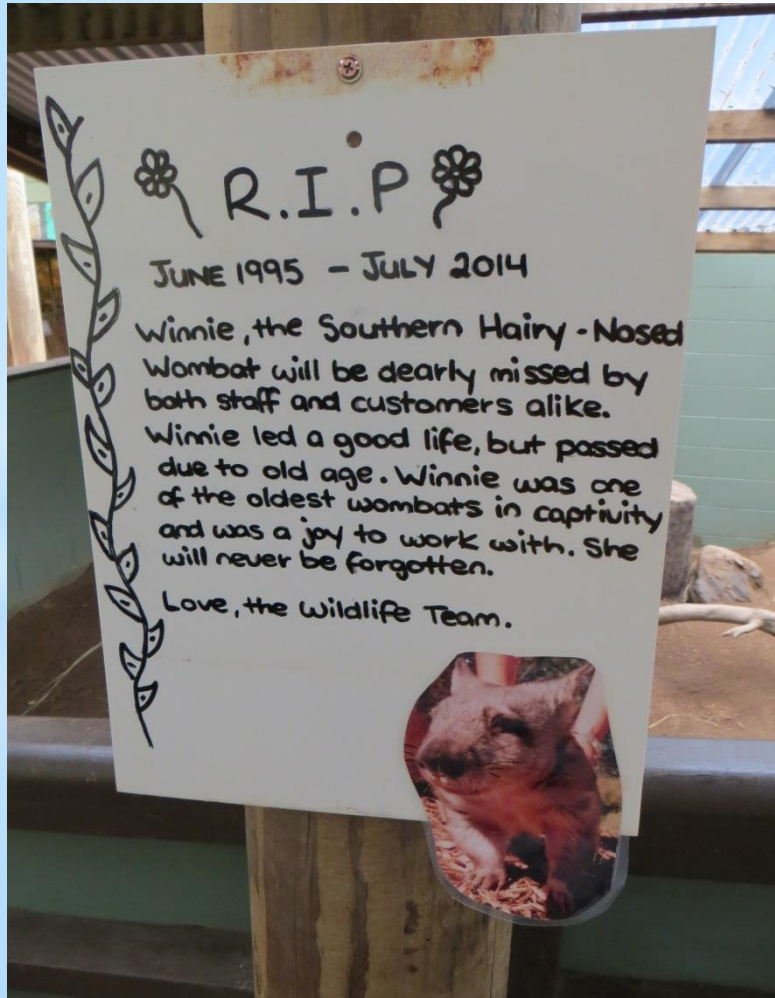 R.I.P
JUNE 1995 - JULY 2014
Winnie, the Southern Hairy-Nosed
Wombat will be dearly missed by
both staff and customers alike.
Winnie led a good life, but passed
due to old age. Winnie was one
of the oldest wombats in captivity
and was a joy to work with. She
will never be forgotten.
Love, the Wildlife Team.